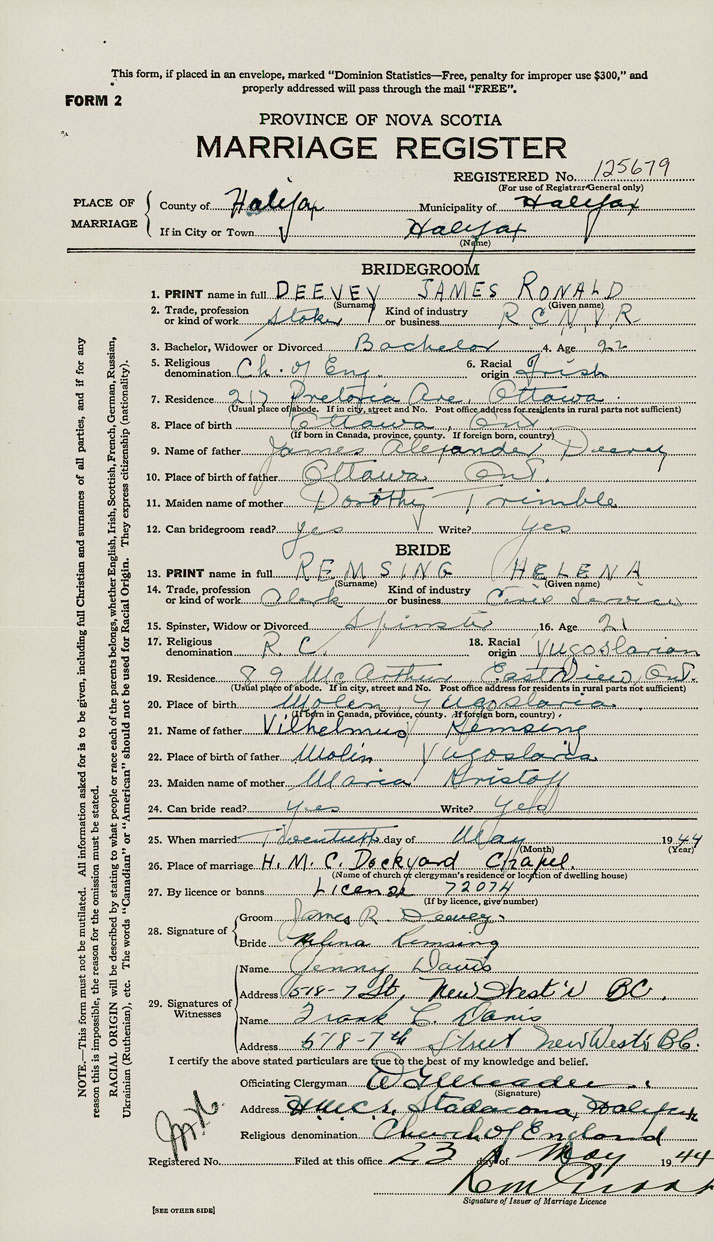 This form, if placed in an envelope, marked "Dominion Statistics—Free, penalty for improper use $300," and
properly addressed will pass through the mail "FREE".
FORM 2
PROVINCE OF NOVA SCOTIA
MARRIAGE REGISTER
REGISTERED No. 125679
(For use of Registrar General only)
PLACE OF MARRIAGE
County of Halifax Municipality of Halifax
If in City or Town Halifax
(Name)
BRIDEGROOM
1. PRINT name in full DEEVEY JAMES RONALD
(Surname) (Given name)
2. Trade, profession or kind of work Stoker Kind of industry or business R C N V R
3. Bachelor, Widower or Divorced Bachelor 4. Age 22
5. Religious denomination Ch. of Eng. 6. Racial origin Irish
7. Residence 217 Pretoria Ave, Ottawa
(Usual place of abode. If in city, street and No. Post office address for residents in rural parts not sufficient)
8. Place of birth Ottawa, Ont
(If born in Canada, province, county. If foreign born, country)
9. Name of father James Alexander Deevey
10. Place of birth of father Ottawa Ont.
11. Maiden name of mother Dorothy Trimble
12. Can bridegroom read? yes Write? yes
BRIDE
13. PRINT name in full REMSING HELENA
(Surname) (Given name)
14. Trade, profession or kind of work Clerk Kind of industry or business Civil Service
15. Spinster, Widow or Divorced Spinster 16. Age 21
17. Religious denomination R. C. 18. Racial origin Yugoslavian
19. Residence 89 McArthur, Eastview, Ont.
(Usual place of abode. If in city, street and No. Post office address for residents in rural parts not sufficient)
20. Place of birth Molin, Yugoslavia
(If born in Canada, province, county. If foreign born, country)
21. Name of father Vilhelmus Remsing
22. Place of birth of father Molin Yugoslavia
23. Maiden name of mother Maria Kristoff
24. Can bride read? yes Write? yes
25. When married Twentieth day of May 1944
(Month) (Year)
26. Place of marriage H. M. C. Dockyard Chapel.
(Name of church or clergyman's residence or location of dwelling house)
27. By licence or banns License 72074
(If by licence, give number)
28. Signature of
Groom James R. Deevey
Bride Helena Remsing
29. Signatures of Witnesses
Name Jenny Davis
Address 678-7 St, New West'r BC.
Name Frank C. Davis
Address 678-7th Street New West'r B.C.
I certify the above stated particulars are true to the best of my knowledge and belief.
Officiating Clergyman
(Signature)
Address H.M.C.S. Stadacona, Halifax
Religious denomination Church of England
Registered No. Filed at this office 23 day of May 1944
Signature of Issuer of Marriage Licence
[SEE OTHER SIDE]
NOTE.—This form must not be mutilated. All information asked for is to be given, including full Christian and surnames of all parties, and if for any
reason this is impossible, the reason for the omission must be stated.
RACIAL ORIGIN will be described by stating to what people or race each of the parents belongs, whether English, Irish, Scottish, French, German, Russian,
Ukrainian (Ruthenian), etc. The words "Canadian" or "American" should not be used for Racial Origin. They express citizenship (nationality).